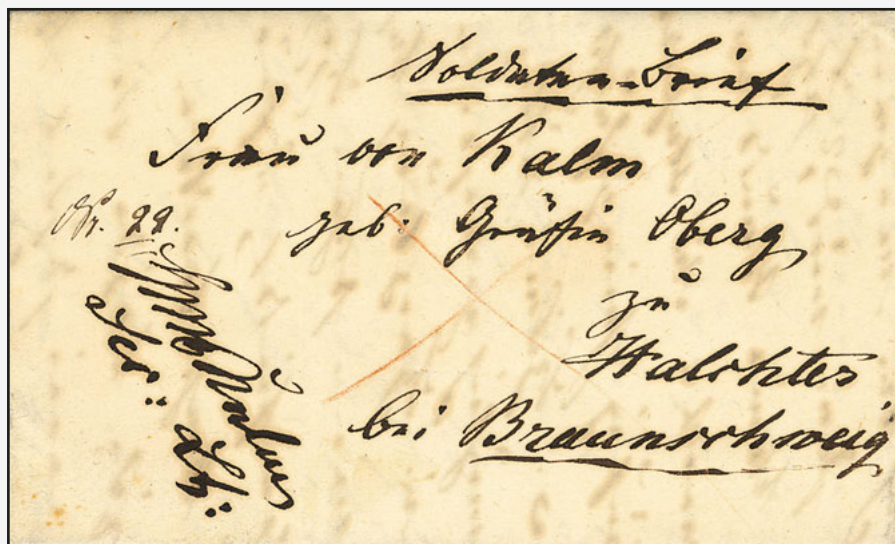 Soldaten-Brief
Frau von Kalm
geb: Gräfin Oberg
zu
Walchtes
bei Braunschweig
Nr. 22.